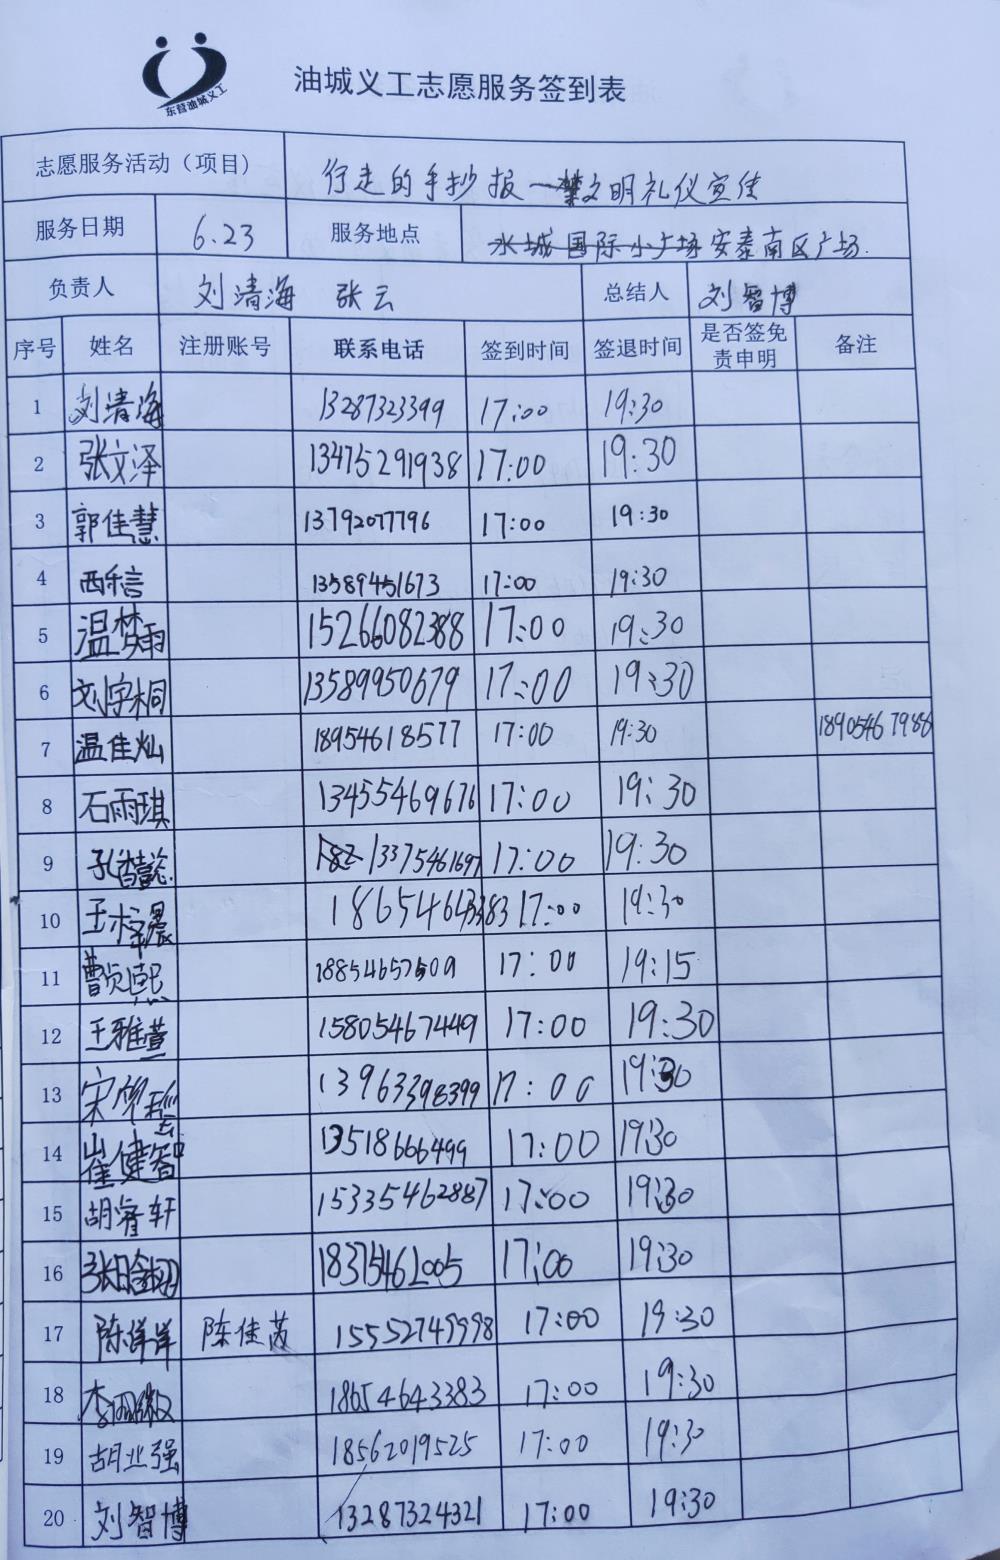 东营油城义工
油城义工志愿服务签到表
志愿服务活动（项目） 行走的手抄报一文明礼仪宣传
服务日期 6.23 服务地点 水城国际小广场安泰南区广场.
负责人 刘清海 张云 总结人 刘智博
序号 姓名 注册账号 联系电话 签到时间 签退时间 是否签免责申明 备注
1 刘清海 13287323399 17:00 19:30
2 张文泽 13475291938 17:00 19:30
3 郭佳慧 13792077796 17:00 19:30
4 13589451673 17:00 19:30
5 温梦雨 15266082388 17:00 19:30
6 刘宇桐 13589950679 17:00 19:30
7 温佳灿 18954618577 17:00 19:30 18905467988
8 石雨琪 13455469676 17:00 19:30
9 孔 13375461697 17:00 19:30
10 王梓晨 18654643383 17:00 19:30
11 曹 熙 18854657509 17:00 19:15
12 王雅萱 15805467449 17:00 19:30
13 宋 13963398399 17:00 19:30
14 崔健智 13518666499 17:00 19:30
15 胡睿轩 15335462887 17:00 19:30
16 张晗翊 18375461005 17:00 19:30
17 陈洋洋 陈佳茵 15552749998 17:00 19:30
18 李 18654643383 17:00 19:30
19 胡业强 18562019525 17:00 19:30
20 刘智博 13287324321 17:00 19:30